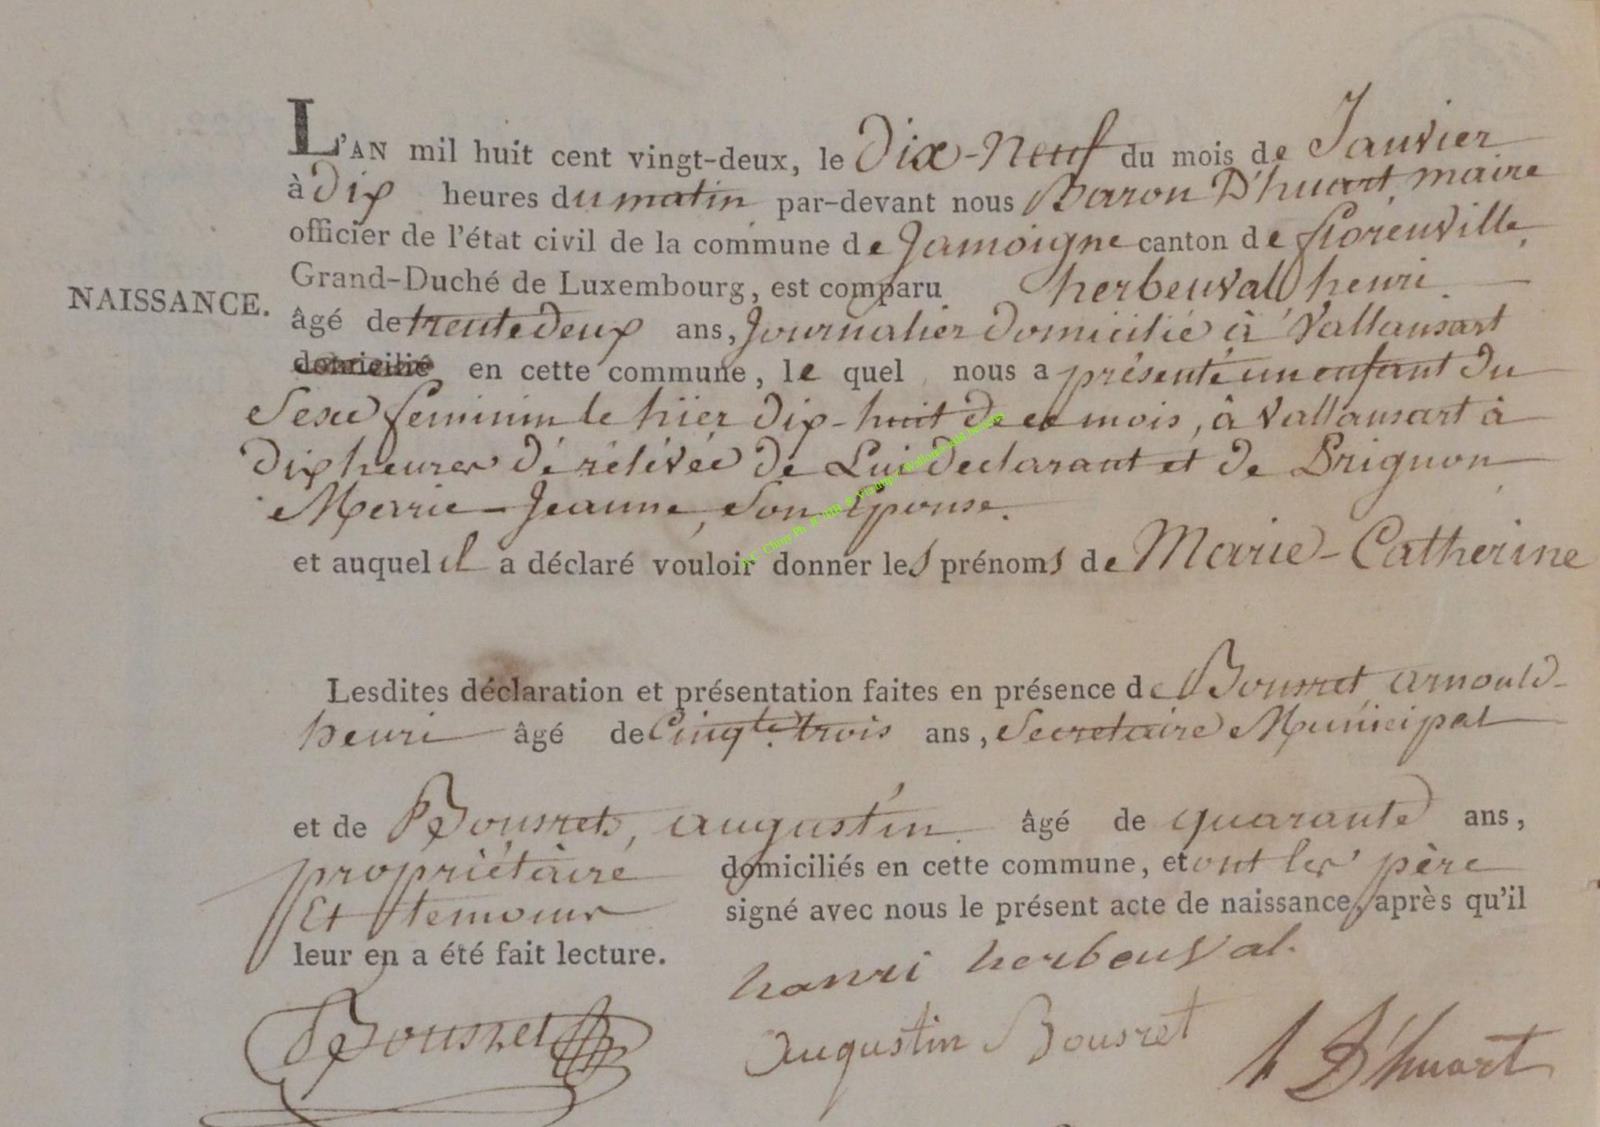 L'AN mil huit cent vingt-deux, le Dix-Neuf du mois de Janvier
à Dix heures du matin par-devant nous Baron D'huart, maire
officier de l'état civil de la commune de Jamoigne canton de florenville,
NAISSANCE. Grand-Duché de Luxembourg, est comparu herbeuval henri
âgé de trente deux ans, Journalier domicilié à Vallansart
domicilié en cette commune, le quel nous a présenté un enfant du
Sexe feminin le hier dix-huit de ce mois, à Vallansart à
dix heures dé rélévéé de Lui declarant et de Brignon
Marie-Jeanne, Son Epouse.
et auquel il a déclaré vouloir donner les prénoms de Marie-Catherine
Lesdites déclaration et présentation faites en présence de Bousret arnould-
henri âgé de Cinqte. trois ans, Secretaire Municipal
et de Bousret, augustin âgé de quarante ans,
propriétaire domiciliés en cette commune, et ont les père
Et temoins signé avec nous le présent acte de naissance, après qu'il
leur en a été fait lecture.
hanri herbeuval.
Bousret augustin Bousret D'huart